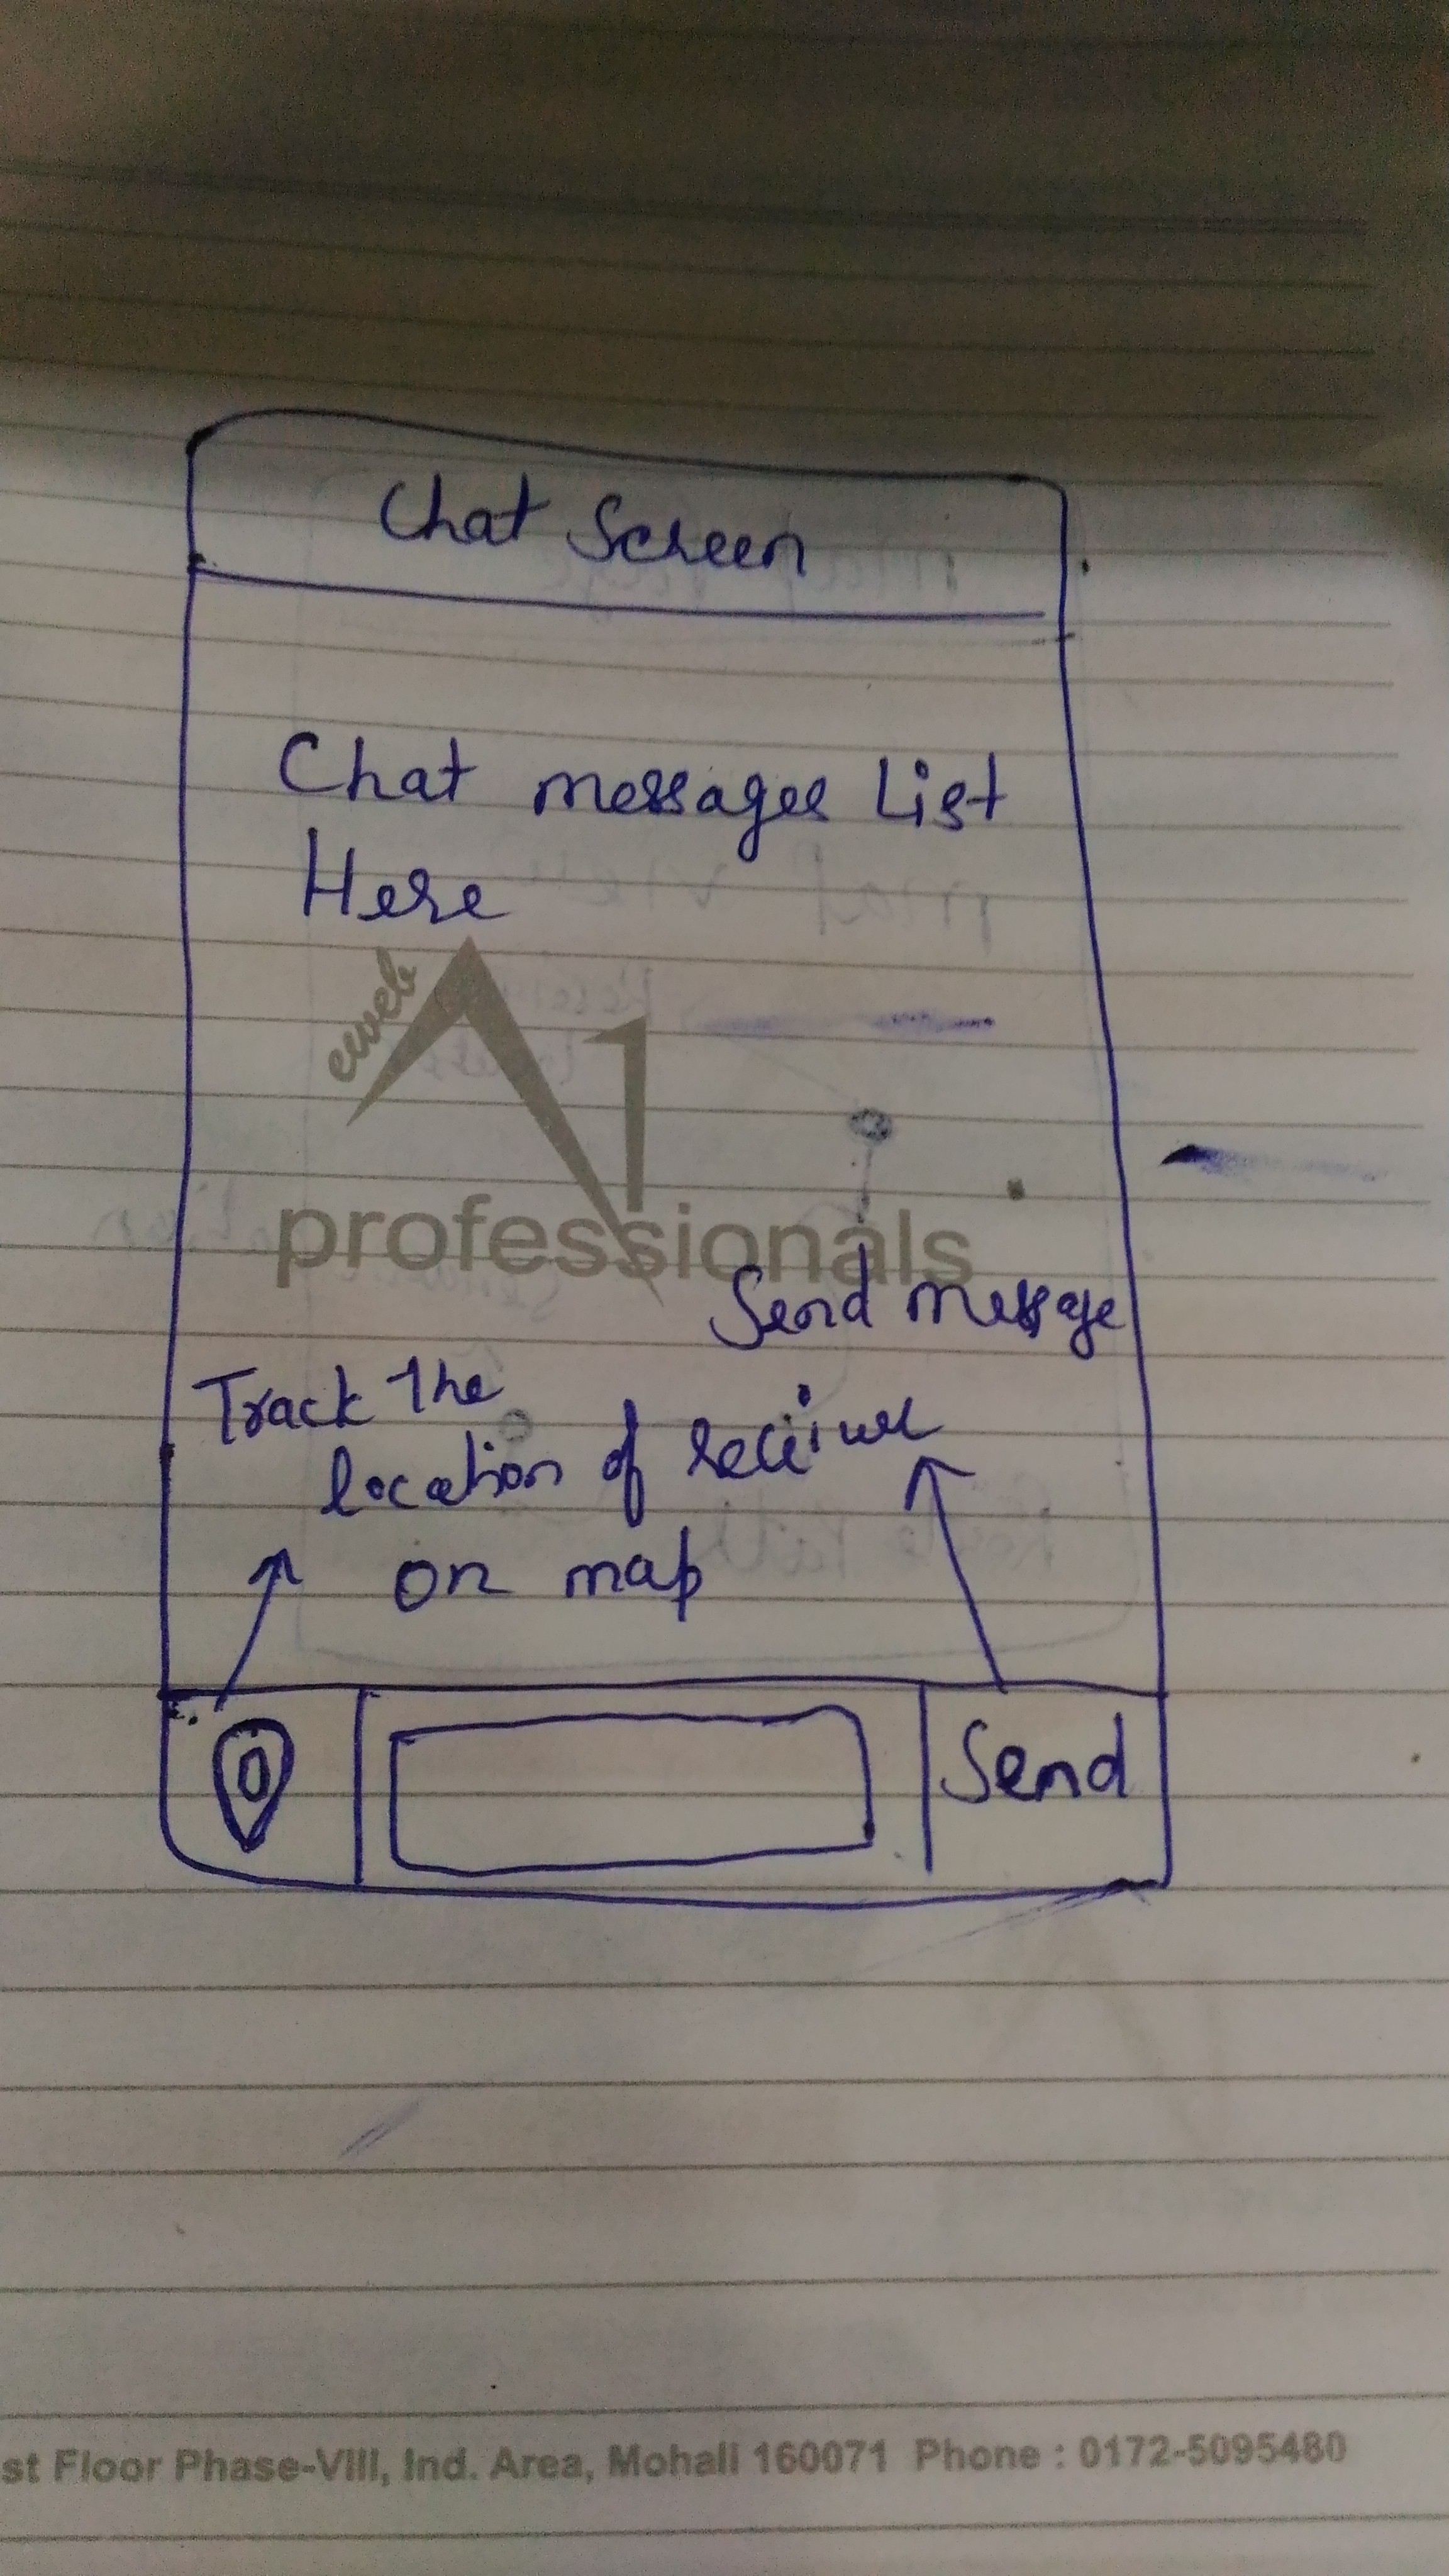 Chat Screen
Chat messages List
Here
eweb
A1
professionals
Send message
Track the
location of receiver
on map
Send
st Floor Phase-VIII, Ind. Area, Mohali 160071 Phone : 0172-5095480